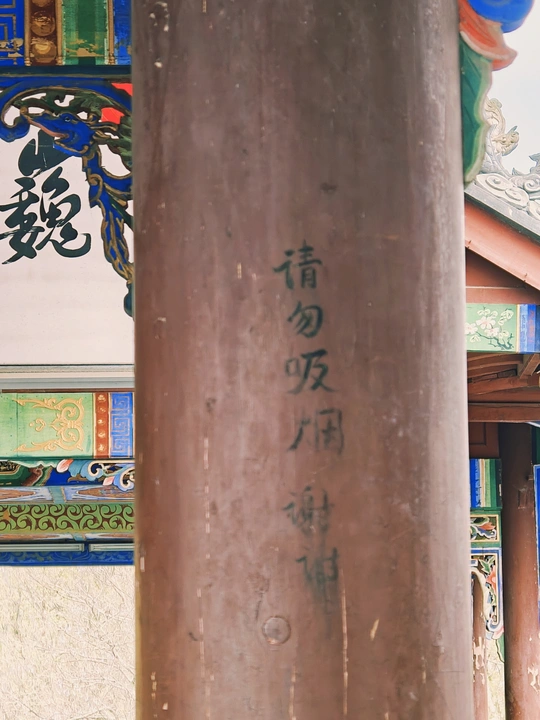 巍
请勿吸烟 谢谢